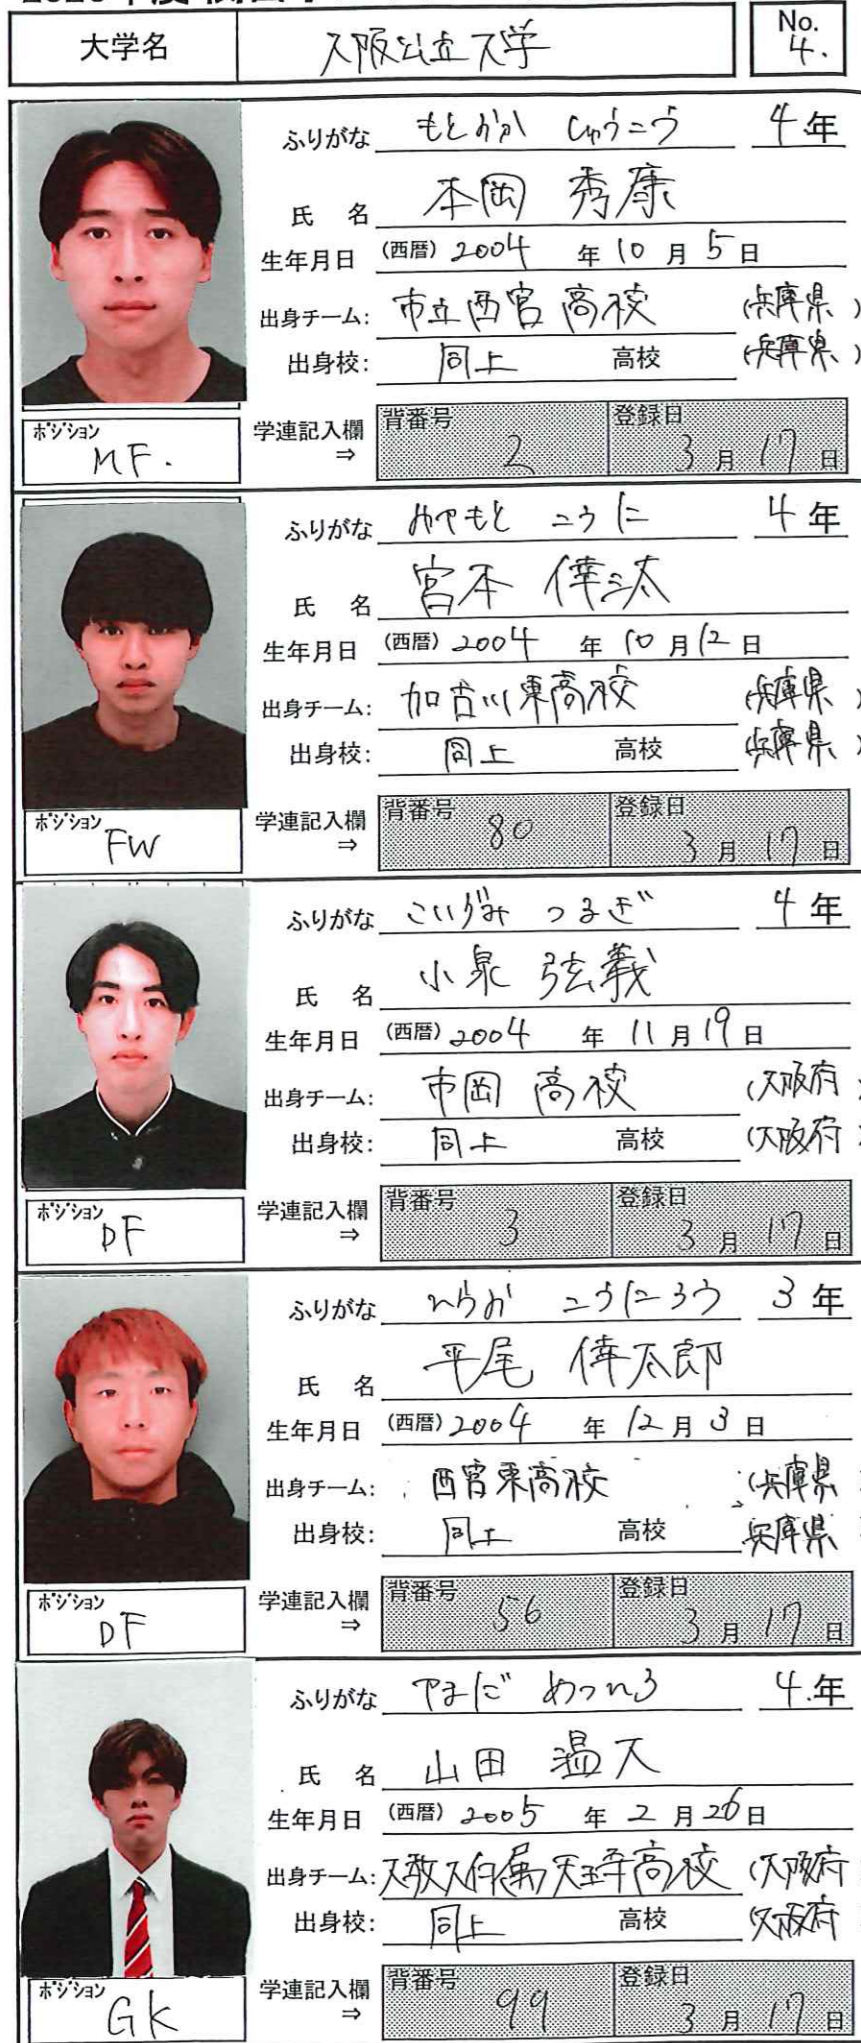 大学名 大阪公立大学 No. 4.
ふりがな もとおか しゅうこう 4年
氏 名 本岡 秀康
生年月日 (西暦) 2004 年 10 月 5 日
出身チーム: 市立西宮高校 (兵庫県)
出身校: 同上 高校 (兵庫県)
ポジション MF.
学連記入欄 ⇒ 背番号 2 登録日 3月17日
ふりがな みやもと こうた 4年
氏 名 宮本 倖汰
生年月日 (西暦) 2004 年 10 月 12 日
出身チーム: 加古川東高校 (兵庫県)
出身校: 同上 高校 (兵庫県)
ポジション FW
学連記入欄 ⇒ 背番号 80 登録日 3月17日
ふりがな こいずみ つるぎ 4年
氏 名 小泉 弦義
生年月日 (西暦) 2004 年 11 月 19 日
出身チーム: 市岡高校 (大阪府
出身校: 同上 高校 (大阪府
ポジション DF
学連記入欄 ⇒ 背番号 3 登録日 3月17日
ふりがな ひらお こうたろう 3年
氏 名 平尾 倖太郎
生年月日 (西暦) 2004 年 12 月 3 日
出身チーム: 西宮東高校 (兵庫県
出身校: 同上 高校 兵庫県
ポジション DF
学連記入欄 ⇒ 背番号 56 登録日 3月17日
ふりがな やまだ あつひろ 4.年
氏 名 山田 温大
生年月日 (西暦) 2005 年 2 月 26 日
出身チーム: 大教大附属天王寺高校 (大阪府
出身校: 同上 高校 (大阪府
ポジション GK
学連記入欄 ⇒ 背番号 99 登録日 3月17日